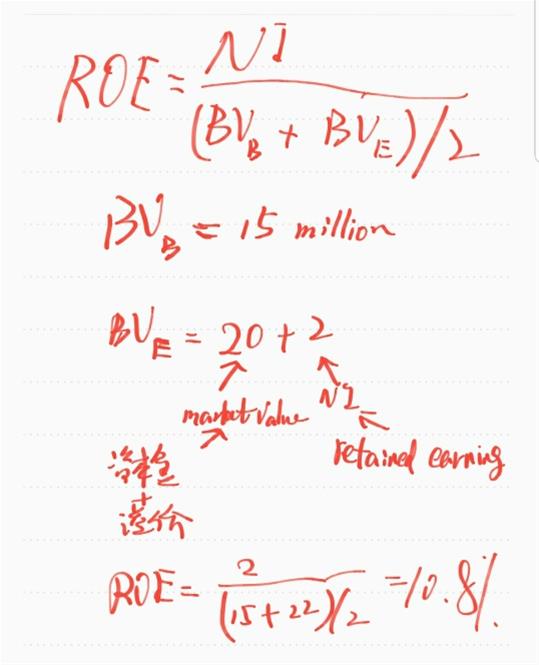 ROE = NI / (BV_B + BV_E)/2
BV_B = 15 million
BV_E = 20 + 2
market value NI
retained earning
+
溢价
ROE = 2 / (15+22)/2 = 10.8%